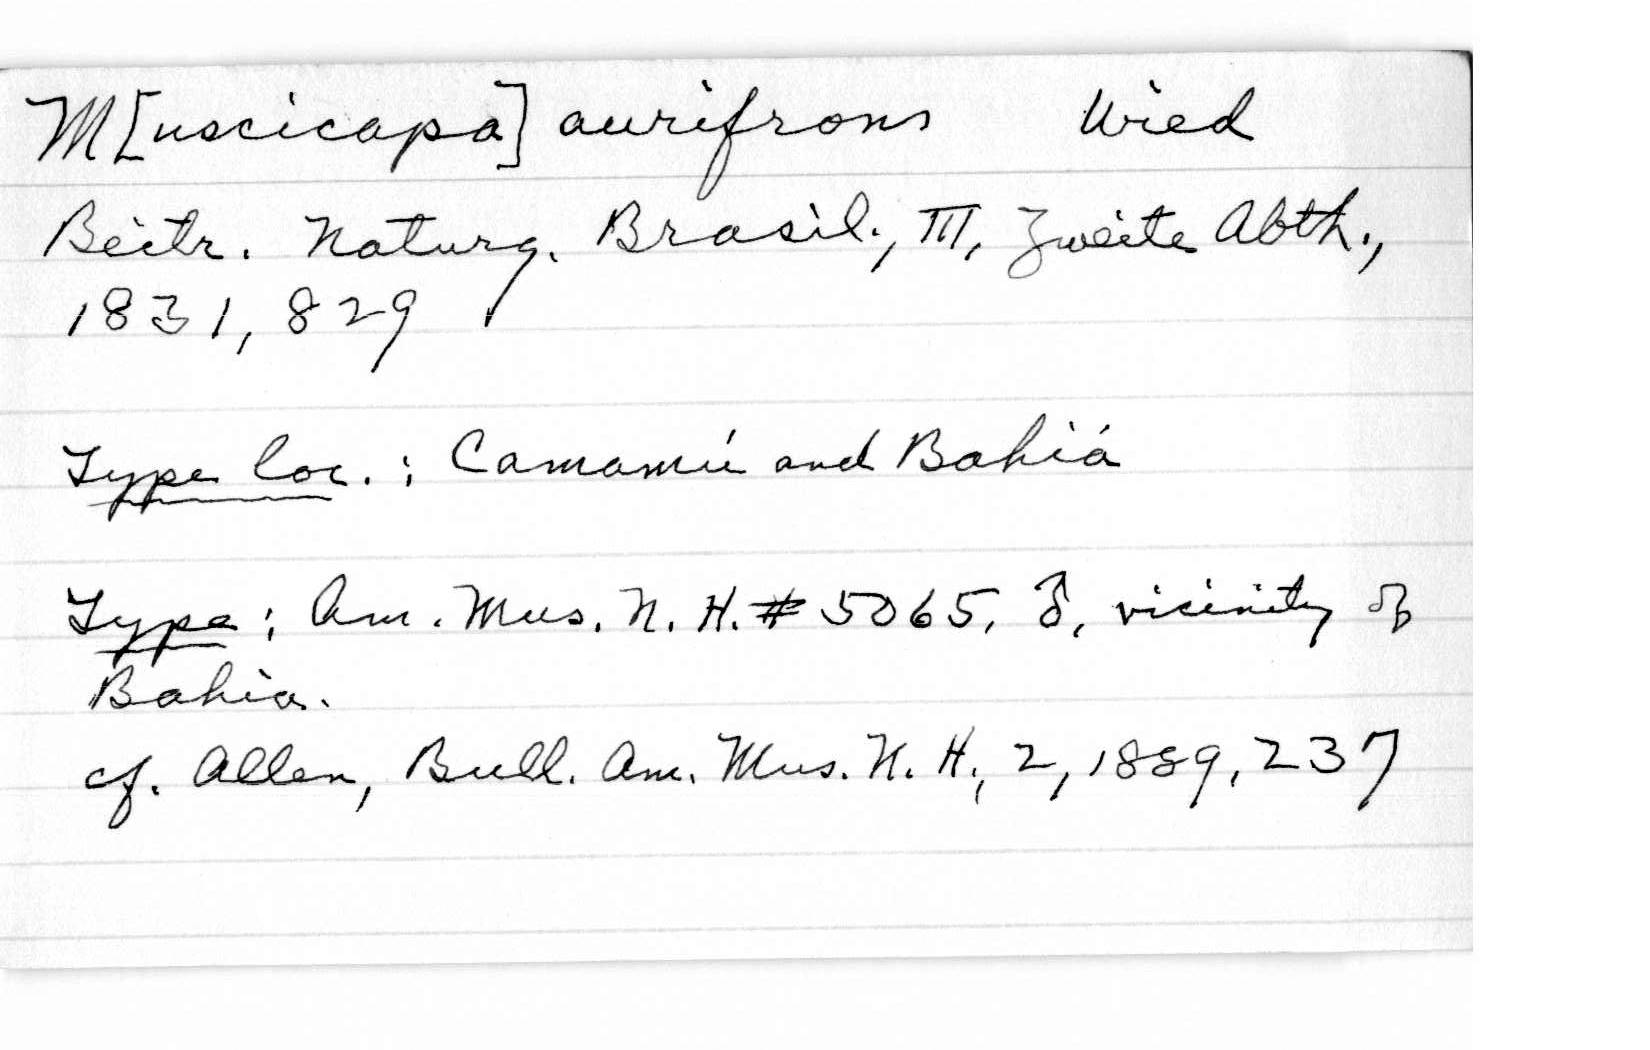 M[uscicapa] aurifrons Wied
Beitr. Naturg. Brasil., III, Zweite Abth.,
1831, 829
Type loc.: Camamú and Bahiá
Type: Am. Mus. N. H. # 5065, ♂, vicinity of
Bahia.
cf. Allen, Bull. Am. Mus. N. H., 2, 1889, 237